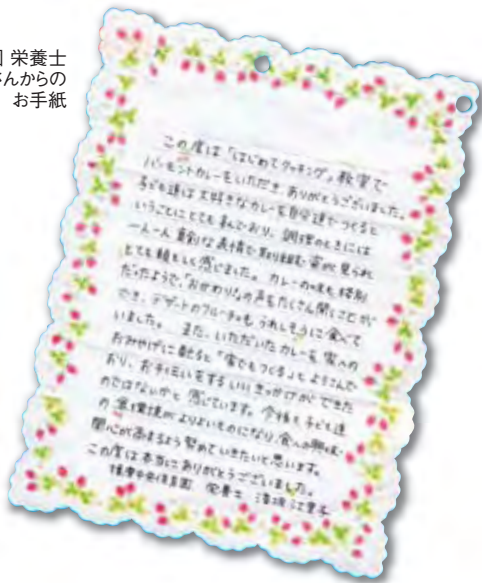 栄養士
さんからの
お手紙
この度は「はじめてクッキング」教室で
バーモントカレーをいただき ありがとうございました。
子ども達は大好きなカレーを自分達でつくると
いうことにとても喜んでおり、調理のときには
一人一人真剣な表情で取り組む姿が見られ
とても頼もしく感じました。カレーの味も格別
だったようで、「おかわり!」の声をたくさん聞くことが
でき、デザートのフルーチェも うれしそうに食べて
いました。また、いただいたカレーを家への
おみやげに配ると「家でもつくる」とよろこんで
おり、お手伝いをするいいきっかけができた
のではないかと 感じています。今後も子ども達
の食環境がよりよいものになり、食への興味・
関心が高まるよう努めていきたいと思います。
この度は本当にありがとうございました。
中央保育園 栄養士